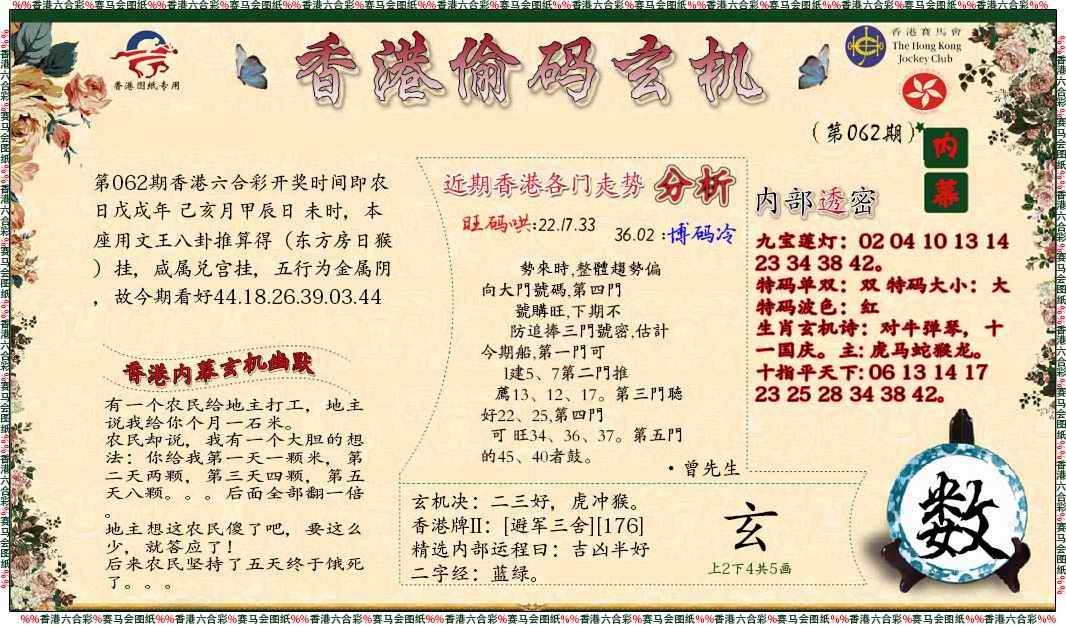 %%香港六合彩%赛马会图纸%%香港六合彩%赛马会图纸%%香港六合彩%赛马会图纸%%香港六合彩%赛马会图纸%%香港六合彩%赛马会图纸%%香港六合彩%赛马会图纸%%香港六合彩%%
香港图纸专用
香港偷码玄机
香港賽馬會
The Hong Kong
Jockey Club
（第062期）
内幕
第062期香港六合彩开奖时间即农
日戊戌年 己亥月甲辰日 未时，本
座用文王八卦推算得（东方房日猴
）挂，咸属兑宫挂，五行为金属阴
，故今期看好44.18.26.39.03.44
香港内幕玄机幽默
有一个农民给地主打工，地主
说我给你个月一石米。
农民却说，我有一个大胆的想
法：你给我第一天一颗米，第
二天两颗，第三天四颗，第五
天八颗。。。后面全部翻一倍
。
地主想这农民傻了吧，要这么
少，就答应了！
后来农民坚持了五天终于饿死
了。。。
近期香港各门走势 分析
旺码哄:22.17.33
36.02 :博码冷
勢來時,整體趨勢偏
向大門號碼,第四門
號購旺,下期不
防追捧三門號密,估計
今期船,第一門可
1建5、7第二門推
薦13、12、17。第三門聴
好22、25,第四門
可 旺34、36、37。第五門
的45、40者鼓。
·曾先生
玄机决：二三好，虎冲猴。
香港牌II：[避军三舍][176]
精选内部运程曰：吉凶半好
二字经：蓝绿。
玄
上2下4共5画
内部透密
九宝莲灯：02 04 10 13 14
23 34 38 42。
特码单双：双 特码大小：大
特码波色：红
生肖玄机诗：对牛弹琴，十
一国庆。主: 虎马蛇猴龙。
十指平天下: 06 13 14 17
23 25 28 34 38 42。
数
%%香港六合彩%赛马会图纸%%香港六合彩%赛马会图纸%%香港六合彩%赛马会图纸%%
%%香港六合彩%赛马会图纸%%香港六合彩%赛马会图纸%%香港六合彩%赛马会图纸%%
%%香港六合彩%赛马会图纸%%香港六合彩%赛马会图纸%%香港六合彩%赛马会图纸%%香港六合彩%赛马会图纸%%香港六合彩%赛马会图纸%%香港六合彩%赛马会图纸%%香港六合彩%%